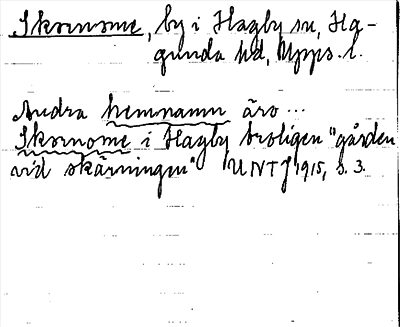 Skornome, by i Hagby sn, Ha-
gunda hd, Upps. l.
Andra hemnamn äro...
Skornome i Hagby troligen "gården
vid skärningen" UNTJ 1915, s. 3.